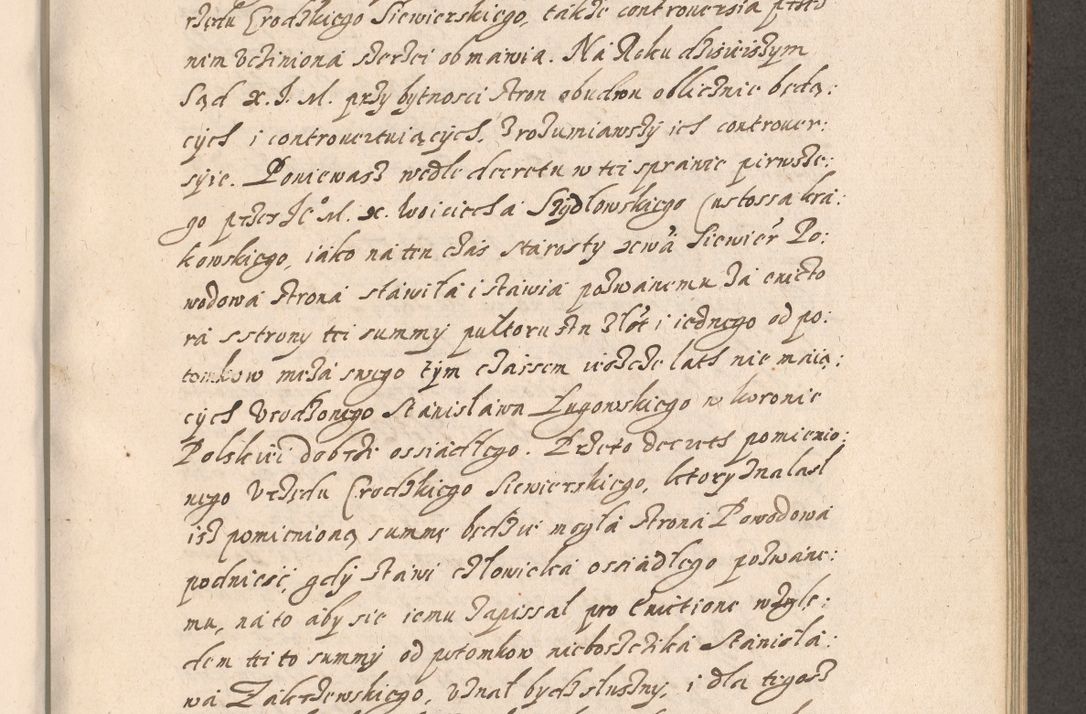 rzędu Grodzkiego Siewierskiego, także controuersia przed
nim vcziniona szerzei obmawia. Na Roku dzisieiszym
Sąd X. J. M. przy bytnosci stron obudwu oblicznie będą:
cych i controuertuiących, zrozumiawszy ich controuer:
syie. Poniewasz wedle decretu w tei sprawie pirwsze:
go przez Je° M. X. Woiciecha Szydlowskiego Custossa kra:
kowskiego, iako na ten czas starosty Siewier Po:
wodowa strona stawila i stawia pozwanemu za euicto
ra s strony tei summy pultoru sta zlot i iednego od po:
tomkow męza swego tym czassem ieszcze lath nie maią:
cych Vrodzonego Stanislawa Lugowskiego w koronie
Polskiei dobrze ossiadlego. Przeto decreth pomienio:
nego Vrzędu Grodzkiego Siewierskiego, ktory znalasl
isz pomienioną summę będzie mogla strona Powodowa
podniesć, gdy stawi czlowieka ossiadlego pozwane:
mu, na to aby sie iemu zapissal pro Euictione wzglę:
dem tei to summy od potomkow nieboszczika Stanisla:
wa Zakrzewskiego, vznal bydz slusznyi, i dla tegosz